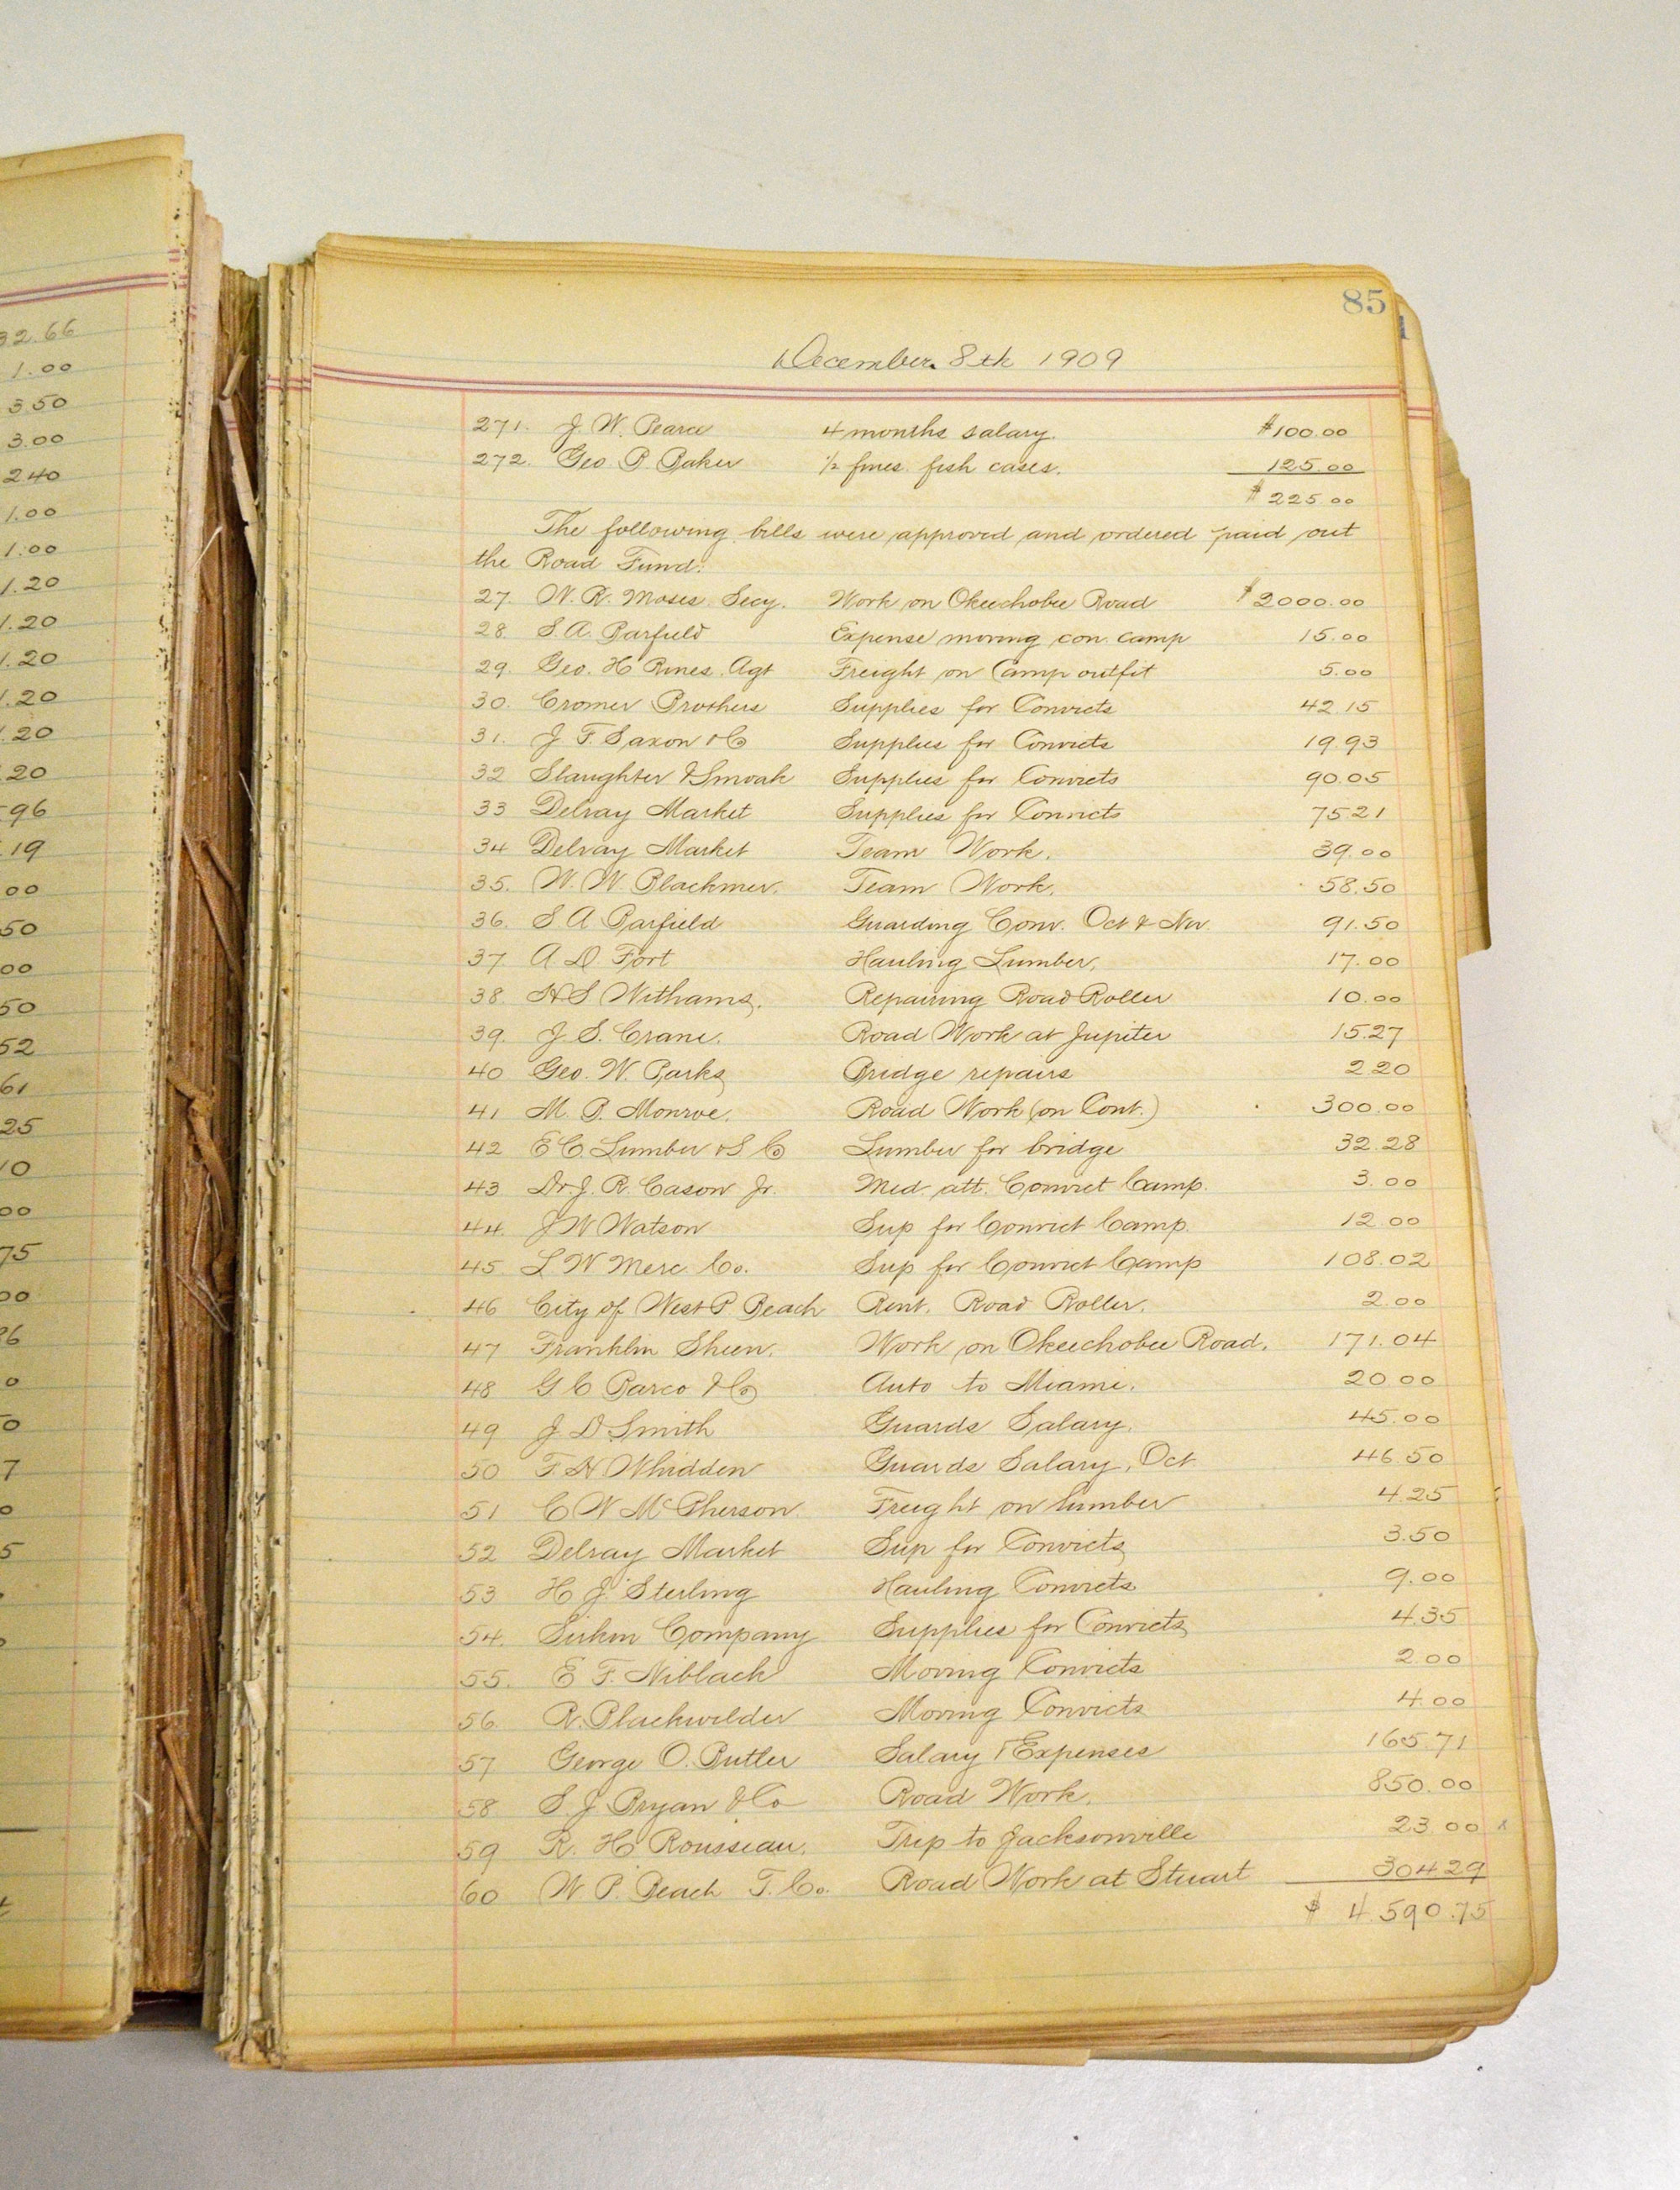 32.66
1.00
3 50
3.00
2 40
1.00
1.00
1.20
1.20
1.20
1.20
1.20
20
96
19
00
50
00
50
52
61
25
10
00
75
00
0
0
7
0
5
85
December 8th 1909
271. J. W. Pearce 4 months salary. $100.00
272. Geo. P. Baker 1/2 fines fish cases. 125.00
$ 225.00
The following bills were approved and ordered paid out
the Road Fund:
27. W. R. Moses Secy. Work on Okeechobee Road $2000.00
28. S. A. Barfield Expense moving con. camp 15.00
29. Geo. H Rines. Agt Freight on Camp outfit 5.00
30. Cromer Brothers Supplies for Convicts 42.15
31. J. F. Saxon & Co Supplies for Convicts 19.93
32 Slaughter & Smoak Supplies for Convicts 90.05
33 Delray Market Supplies for Convicts 75 21
34 Delray Market Team Work. 39.00
35. W. W. Blackmer. Team Work. 58.50
36. S A Barfield Guarding Conv. Oct & Nov 91.50
37 A D Fort Hauling Lumber. 17.00
38. H S Withams. Repairing Road Roller 10.00
39. J. S. Crane. Road Work at Jupiter 15.27
40 Geo. W. Parks Bridge repairs 2 20
41 M. B. Monroe. Road Work (on Cont.) 300.00
42 E C. Lumber & S Co Lumber for bridge 32.28
43 Dr. J. R. Cason Jr. Med. att. Convict Camp. 3.00
44. J W Watson Sup for Convict Camp. 12 00
45 L W Merc Co. Sup for Convict Camp 108.02
46 City of West P Beach Rent. Road Roller. 2.00
47 Franklin Sheen. Work on Okeechobee Road. 171.04
48 G C Barco & Co Auto to Miami. 20 00
49 J D Smith Guards Salary. 45.00
50 F. H Whidden Guards Salary, Oct 46.50
51 C W McPherson Freight on lumber 4.25
52 Delray Market Sup for Convicts 3.50
53 H J. Sterling Hauling Convicts 9.00
54. Sirkin Company Supplies for Convicts 4.35
55. E F. Niblack Moving Convicts 2.00
56. R. Blackwelder Moving Convicts 4.00
57 George O. Butler Salary & Expenses 165.71
58 S. J. Bryan & Co Road Work. 850.00
59 R. H Rousseau. Trip to Jacksonville 23 00
60 W P. Beach T. Co. Road Work at Stuart 304 29
$ 4 590.75